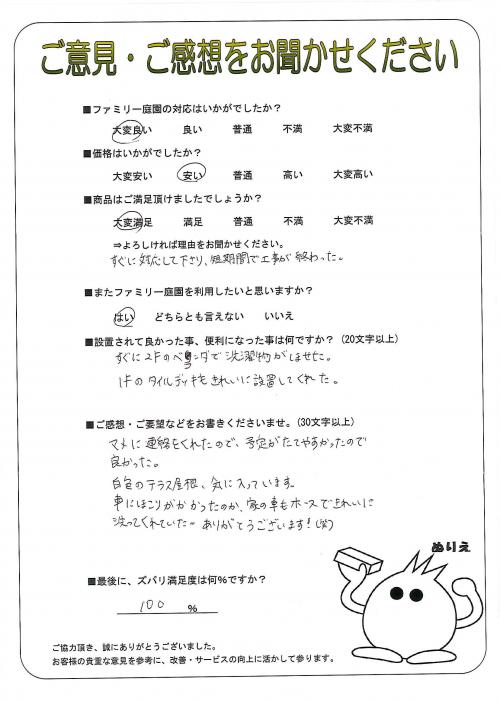 ご意見・ご感想をお聞かせください
■ファミリー庭園の対応はいかがでしたか？
大変良い 良い 普通 不満 大変不満
■価格はいかがでしたか？
大変安い 安い 普通 高い 大変高い
■商品はご満足頂けましたでしょうか？
大変満足 満足 普通 不満 大変不満
⇒よろしければ理由をお聞かせください。
すぐに対応して下さり、短期間で工事が終わった。
■またファミリー庭園を利用したいと思いますか？
はい どちらとも言えない いいえ
■設置されて良かった事、便利になった事は何ですか？（20文字以上）
すぐに2Fのベランダで洗濯物がほせた。
1Fのタイルデッキもきれいに設置してくれた。
■ご感想・ご要望などをお書きくださいませ。（30文字以上）
マメに連絡をくれたので、予定がたてやすかったので
良かった。
白色のテラス屋根、気に入っています。
車にほこりがかかったのか、家の車もホースできれいに
洗ってくれていた= ありがとうございます！(笑)
ぬりえ
■最後に、ズバリ満足度は何%ですか？
100 %
ご協力頂き、誠にありがとうございました。
お客様の貴重な意見を参考に、改善・サービスの向上に活かして参ります。